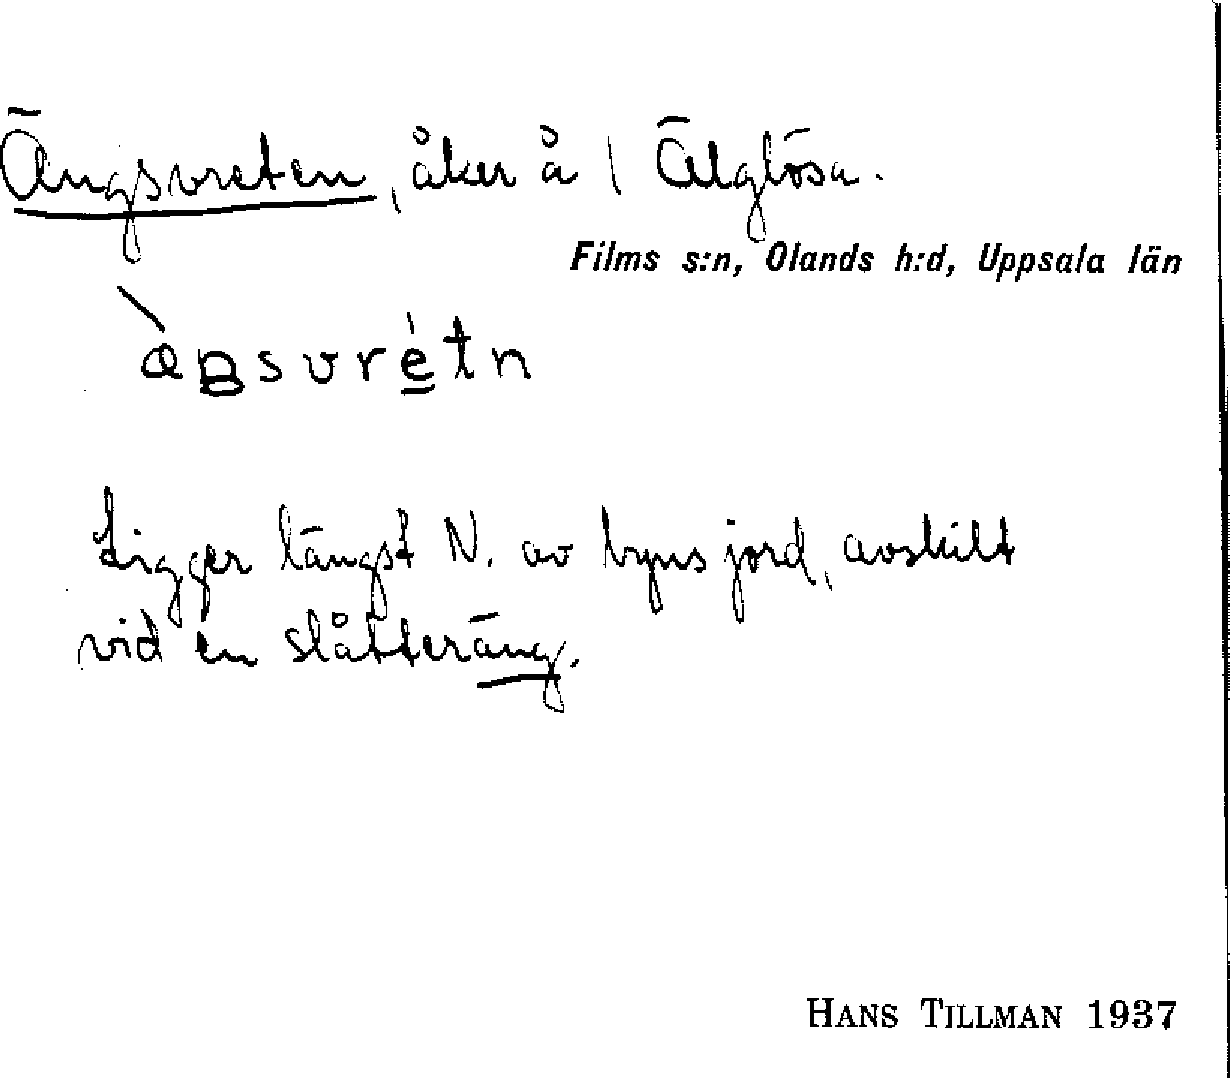 Ängsvreten, åker å 1 Älglösa.
Films s:n, Olands h:d, Uppsala län
Ligger längst N. av byns jord, avskilt
vid en slåtteräng.
HANS TILLMAN 1937